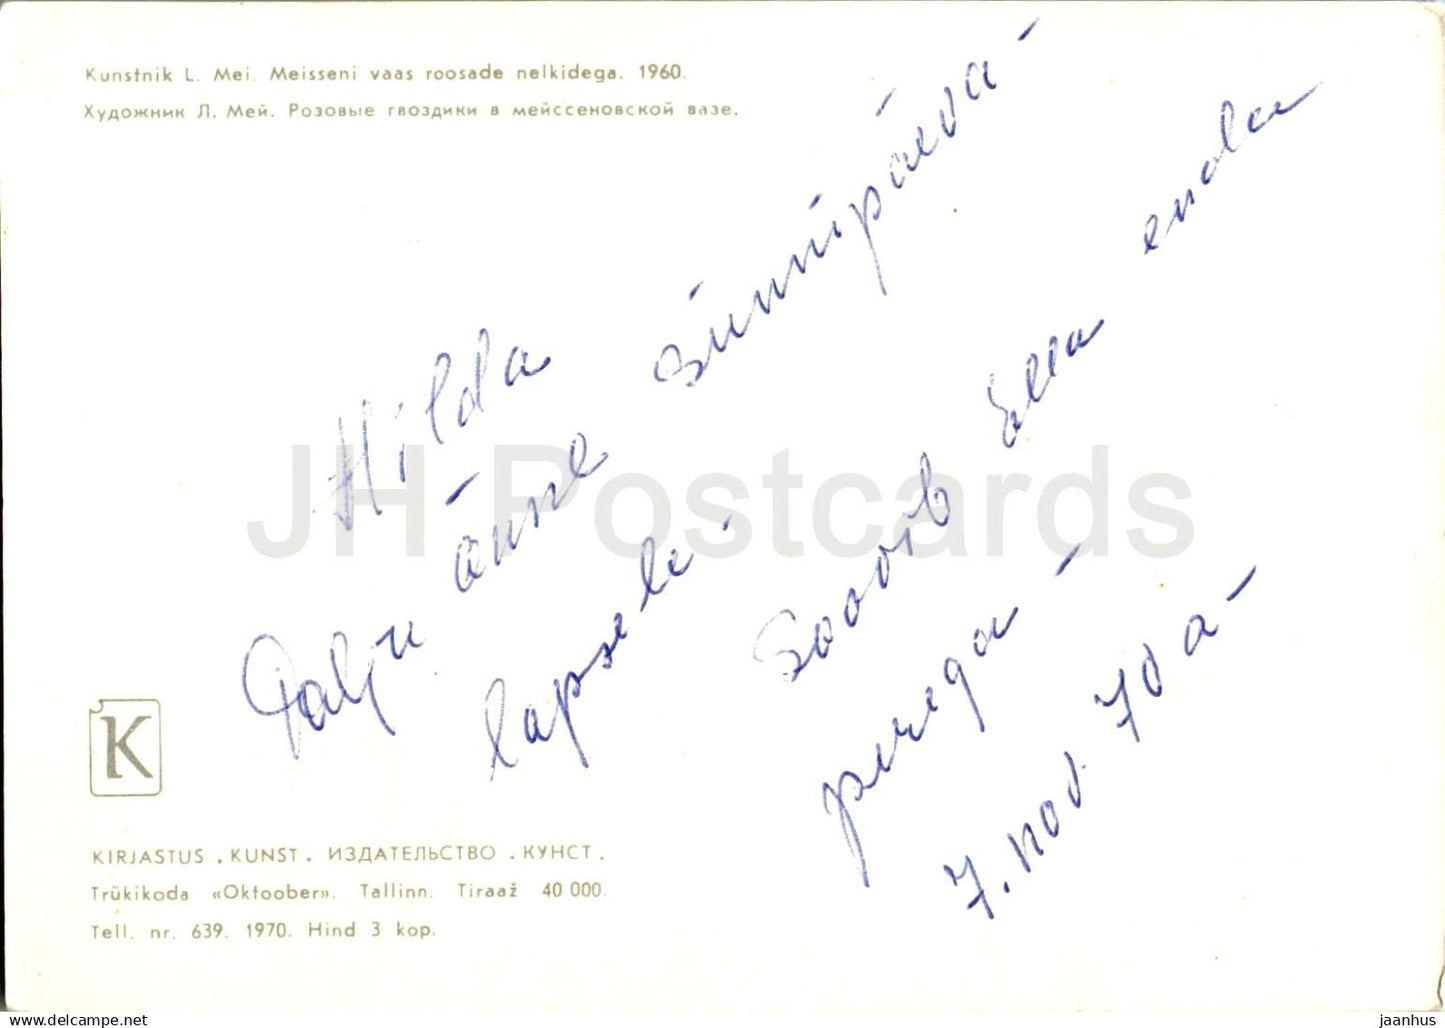 Kunstnik L. Mei. Meisseni vaas roosade nelkidega. 1960.
Художник Л. Мей. Розовые гвоздики в мейссеновской вазе.
Hilda
Palju õnne sünnipäeva-
lapsele.
Soovib Ella enda
perega -
7. nov. 70 a-
JH Postcards
K
KIRJASTUS . KUNST . ИЗДАТЕЛЬСТВО . КУНСТ .
Trükikoda «Oktoober». Tallinn. Tiraaž 40 000.
Tell. nr. 639. 1970. Hind 3 kop.
delcampe.net
jaanhus